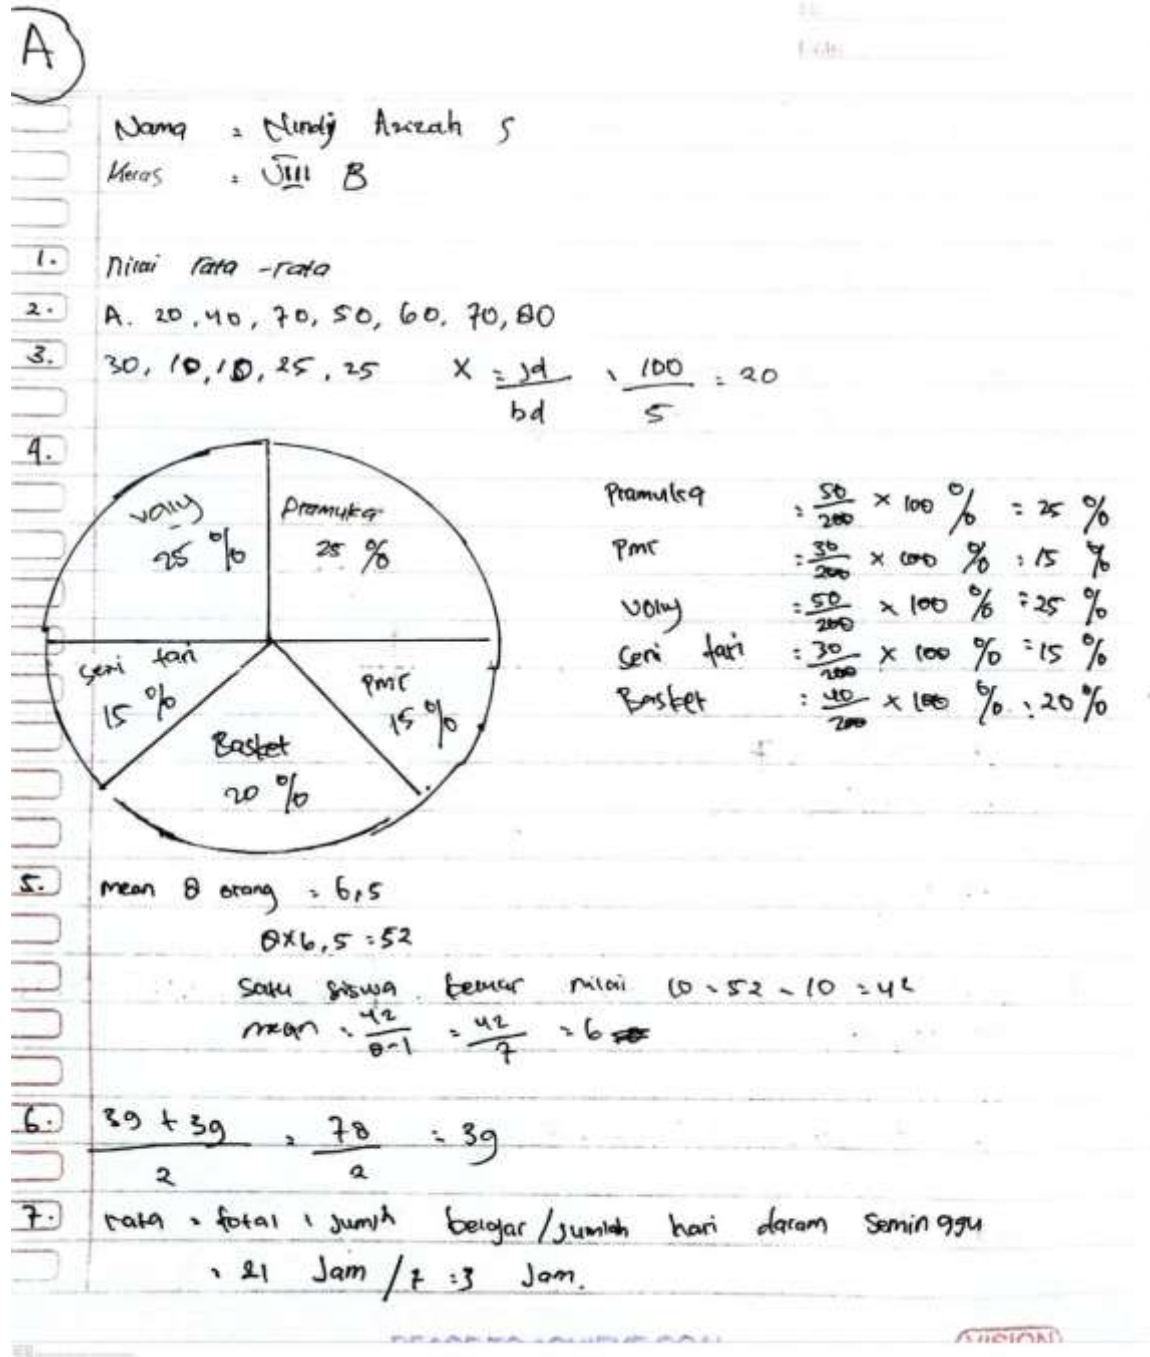 A
Nama : Nindy Azizah S
Kelas : VIII B
1. Nilai rata-rata
2. A. 20, 40, 70, 50, 60, 70, 80
3. 30, 10, 10, 25, 25 X = jd / bd = 100 / 5 = 20
4.
voly 25 %
Pramuka 25 %
seni tari 15 %
PMR 15 %
Basket 20 %
Pramuka = 50/200 × 100 % = 25 %
PMR = 30/200 × 100 % = 15 %
voly = 50/200 × 100 % = 25 %
seni tari = 30/200 × 100 % = 15 %
Basket = 40/200 × 100 % = 20 %
5. mean 8 orang = 6,5
8×6,5 = 52
Satu siswa keluar nilai 10 = 52 - 10 = 42
mean = 42/8-1 = 42/7 = 6
6. 39 + 39 / 2 = 78 / 2 = 39
7. rata = total : jumlh belajar/jumlah hari dalam seminggu
= 21 Jam / 7 = 3 Jam.
VISION